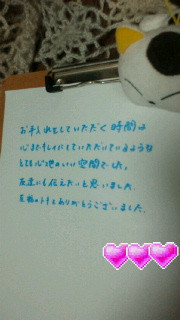 お手入れをしていただく時間は
心までキレイにしていただいているような
とても心地のいい空間でした。
友達にも伝えたいと思いました。
ありがとうございました。